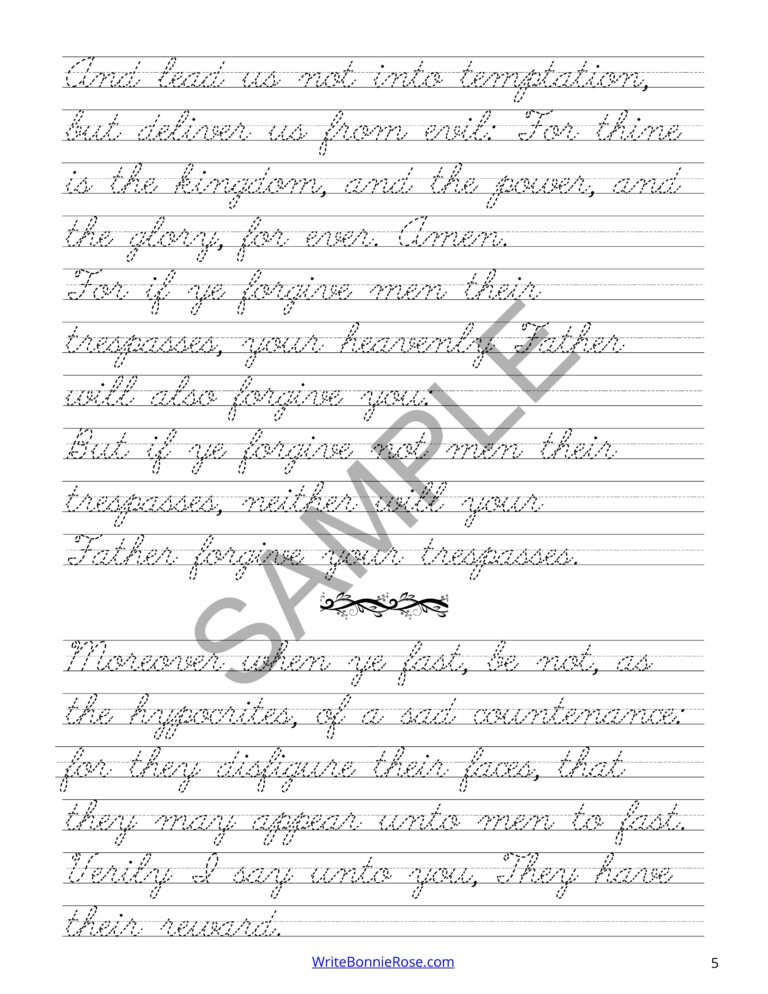 And lead us not into temptation,
but deliver us from evil: For thine
is the kingdom, and the power, and
the glory, for ever. Amen.
For if ye forgive men their
trespasses, your heavenly Father
will also forgive you:
But if ye forgive not men their
trespasses, neither will your
Father forgive your trespasses.
SAMPLE
Moreover when ye fast, be not, as
the hypocrites, of a sad countenance:
for they disfigure their faces, that
they may appear unto men to fast.
Verily I say unto you, They have
their reward.
WriteBonnieRose.com 5